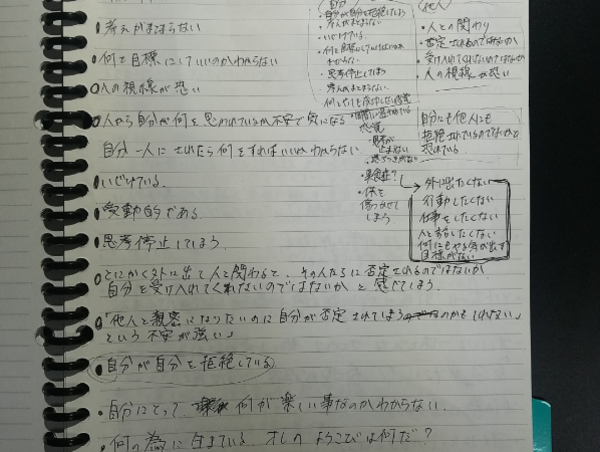 考えがまとまらない
何を目標にしていいのかわからない
人の視線が恐い
人から自分が何を思われているか不安で気になる
自分一人にされたら何をすればいいかわからない
いじけている。
受動的である。
思考停止してしまう。
とにかく外に出て人と関わると、その人たちに否定されるのではないか
自分を受け入れてくれないのではないか、と感じてしまう。
「他人と親密になりたいのに自分が否定されてしまうのかもしれない」
という不安が強い
自分が自分を拒絶している
・自分にとって、何が楽しい事なのかわからない。
・何の為に生きている オレの よろこびは何だ?
自分
・自分が自分を拒絶したよう
・考えがまとまらない
・いじけている。
わからない。
・思考停止してしまう
考えがまとまらない。
・過食症?
・体を
傷つけて
しまう
他人
・人との関わり
・否定されるのではないか
・受け入れてくれないのではないか
・人の視線が恐い
自分にも他人にも
拒絶されているのではないかと
恐れている
外に出たくない
行動したくない
仕事をしたくない
人と話したくない
何にもやる気が出ず
目標がない